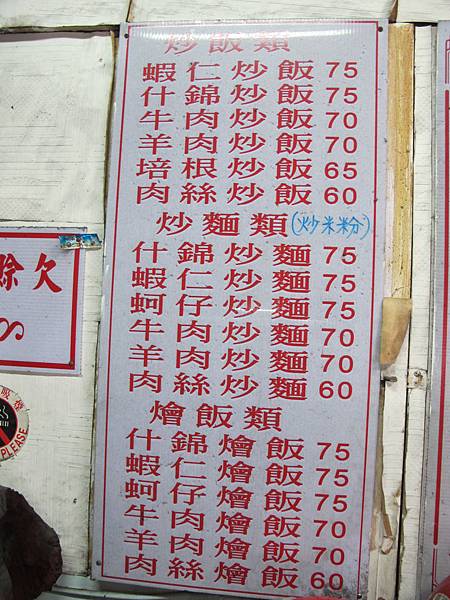 炒飯類
蝦仁炒飯 75
什錦炒飯 75
牛肉炒飯 70
羊肉炒飯 70
培根炒飯 65
肉絲炒飯 60
炒麵類(炒米粉)
什錦炒麵 75
蝦仁炒麵 75
蚵仔炒麵 75
牛肉炒麵 70
羊肉炒麵 70
肉絲炒麵 60
燴飯類
什錦燴飯 75
蝦仁燴飯 75
蚵仔燴飯 75
牛肉燴飯 70
羊肉燴飯 70
肉絲燴飯 60
賒欠
PLEASE